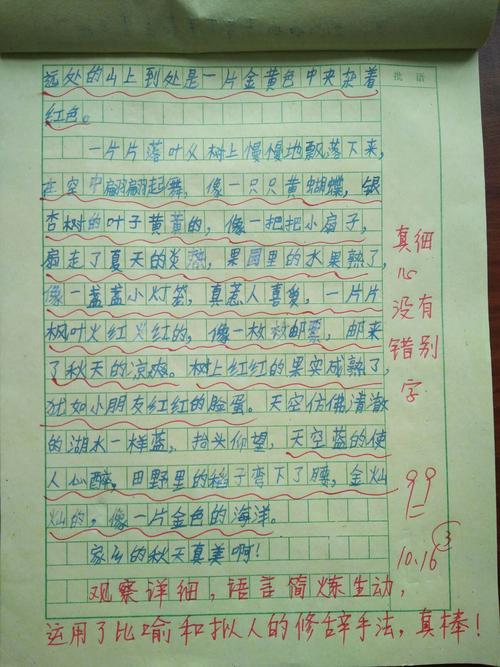 批语
远处的山上到处是一片金黄色中夹杂着
红色。
一片片落叶从树上慢慢地飘落下来,
在空中翩翩起舞,像一只只黄蝴蝶,银
杏树的叶子黄黄的,像一把把小扇子,
扇走了夏天的炎热,果园里的水果熟了,
像一盏盏小灯笼,真惹人喜爱,一片片
枫叶火红火红的,像一枚枚邮票,邮来
了秋天的凉爽。树上红红的果实成熟了,
犹如小朋友红红的脸蛋。天空仿佛清澈
的湖水一样蓝,抬头仰望,天空蓝的使
人心醉,田野里的稻子弯下了腰,金灿
灿的,像一片金色的海洋。
家乡的秋天真美啊!
真细
心
没有
错别
字
99
10.16
3
观察详细,语言简炼生动,
运用了比喻和拟人的修辞手法,真棒!